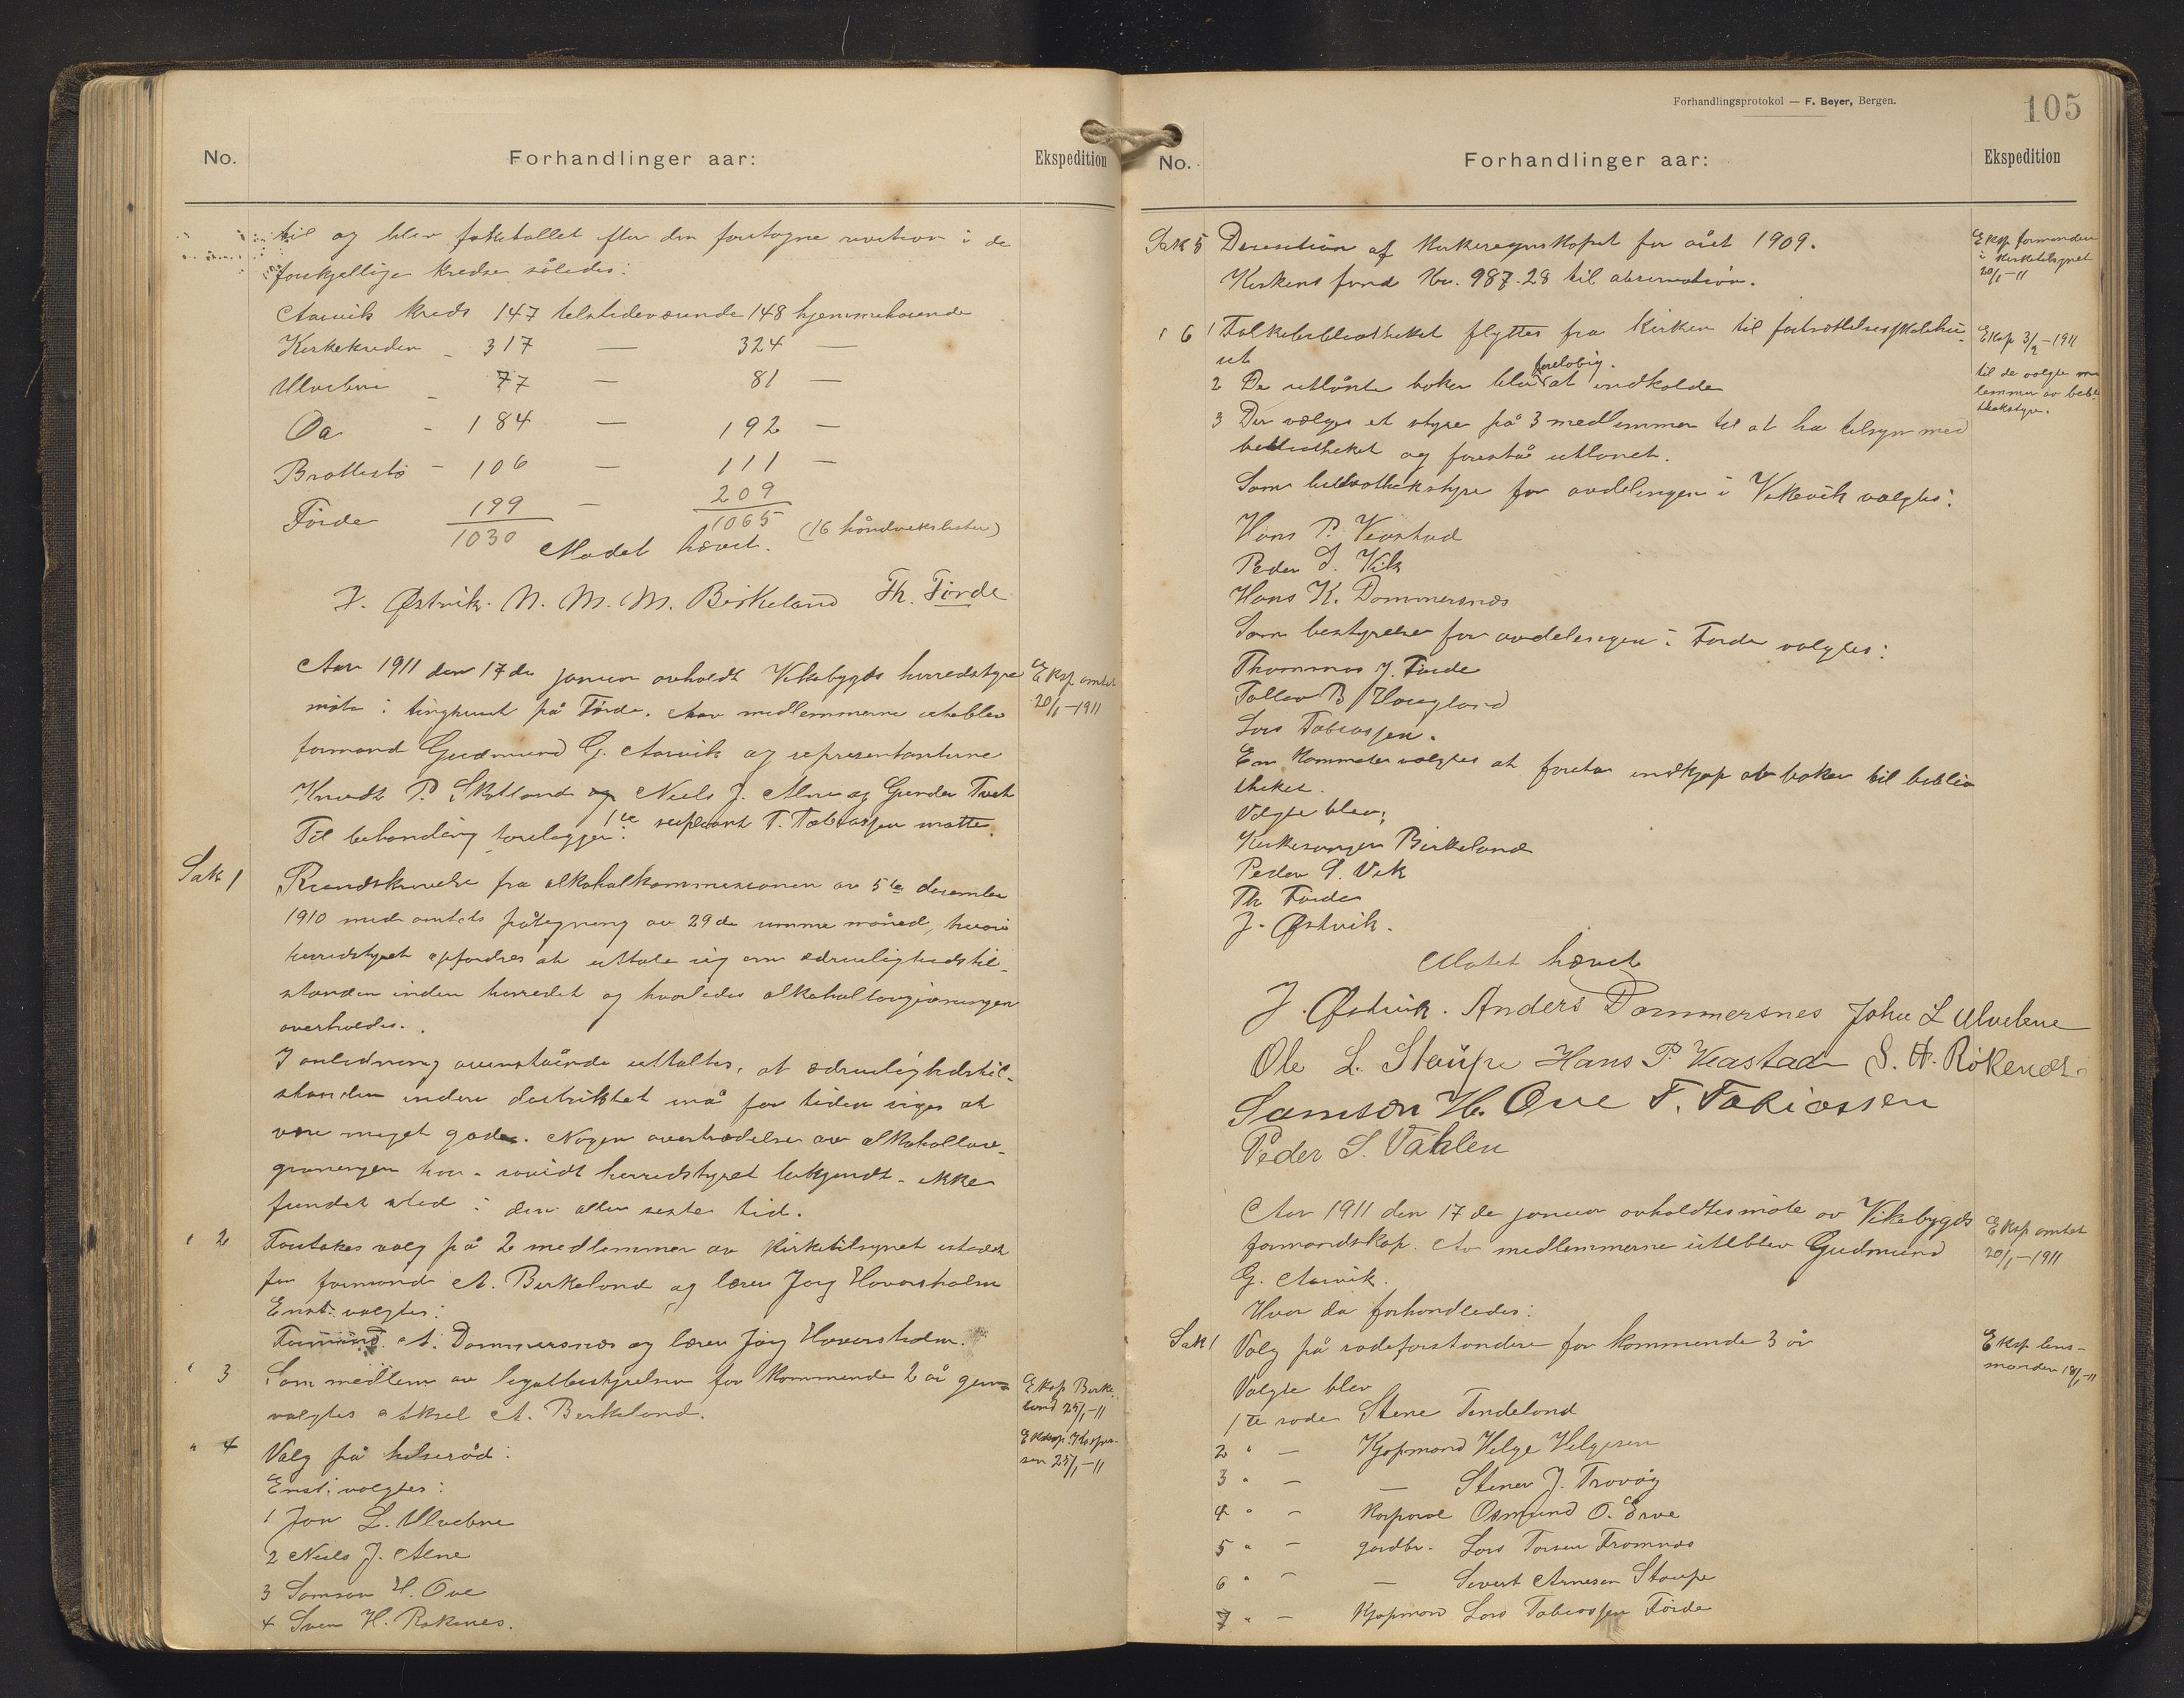 No.
Forhandlinger aar:
Ekspedition
til og blev folketallet efter den foretagne revision i de
forskjellige kredse således:
Aarvik kreds 147 tilstedeværende 148 hjemmehørende
Kirkekredsen - 317 — 324 —
Ulvebne - 77 — 81 —
Oa - 184 — 192 —
Brattestø - 106 — 111 —
Førde 199 — 209
1030 1065 (16 håndverkslister)
Mødet hævet.
J. Østvik. N. M. M. Birkeland Th. Førde
Aar 1911 den 17de januar avholdt Vikebygds herredstyre
møte i tinghuset på Førde. Av medlemmerne uteblev
formand Gudmund G. Aarvik og representanterne
Knudt P. Skotland og Niels J. Alne og Gunder Tveit
1te supleant T. Tobiassen møtte.
Til behandling forelægger:
Eksp amtet
20/1-1911
Sak 1
Rundskrivelse fra alkoholkommissionen av 5te december
1910 med amtets påtegning av 29de samme måned, hvori
herredstyret opfordres at uttale sig om ædruelighedstil-
standen inden herredet og hvorledes alkohollovgivningen
overholdes.
I anledning ovenstående uttaltes, at ædruelighedstil-
standen inden distriktet må for tiden siges at
være meget gode. Nogen overtrædelse av alkohollov-
givningen har - såvidt herredstyret bekjendt - ikke
fundet sted i den aller seste tid.
" 2
Foretokes valg på 2 medlemmer av kirketilsynet istedet
for formand A. Birkeland og lærer Jorg Hovarsholm
Enst. valgtes:
Formand A. Dommersnes og lærer Jorg Hovarsholm.
" 3
Som medlem av legatbestyrelsen for kommende 2 år gjen-
valgtes Aksel A. Birkeland.
Eksp Birke-
land 25/1-11
" 4
Valg på helseråd:
Enst. valgtes:
1 Jon L. Ulvebne
2 Niels J. Alne
3 Samson H. Ove
4 Sven H. Røkenes.
25/1-11
Forhandlingsprotokol — F. Beyer, Bergen.
105
No.
Forhandlinger aar:
Ekspedition
Sak 5
Desecution af Kirkeregnskapet for året 1909.
Kirkens fond Kr. 987.28 til observation.
Eksp formanden
i kirketilsynet
20/1-11
" 6
1 Folkebibliotheket flyttes fra kirken til fortsættelsesskolehu-
set
foreløbig.
2 De utlånte bøker blir at indkalde
3 Der vælges et styre på 3 medlemmer til at ha tilsyn med
bibliotheket og forestå utlånet.
Som bibliothekstyre for avdelingen i Vikevik valgtes:
Eksp 3/2-1911
til de valgte med
lemmer av bibli-
thekstyre.
Hans P. Veastad
Peder S. Vik
Hans K. Dommersnes
Som bestyrelse for avdelingen i Førde valgtes:
Thommas J. Førde
Tollev B Haugland
Lars Tobiassen.
En Kommite valgtes at foreta indkjøp av bøker til biblio
theket.
Valgte blev:
Kirkesanger Birkeland
Peder S. Vik
Th Førde
J. Østvik.
Møtet hævet
J. Østvik. Anders Dommersnes John L Ulvebne
Ole L. Staupe Hans P. Veastad S. H. Røkenes
Samson H. Ove T. Tobiassen
Peder S. Våhlen
Aar 1911 den 17de januar avholdtes møte av Vikebygds
formandskap. Av medlemmerne uteblev Gudmund
G. Aarvik.
Hvor da forhandledes:
Eksp amtet
20/1-1911
Sak 1
Valg på rodeforstandere for kommende 3 år
Valgte blev
Eksp lens-
manden 18/1-11
1te rode Stene Tindeland
2 " — Kjøpmand Helge Helgesen
3 " — — Stener J. Trovåg
4 " — Korporal Osmund O. Erve
5 " — gardbr. Lars Torsen Fromnes
6 " — — Sivert Arnesen Staupe
7 " — Kjøpman Lars Tobiassen Førde